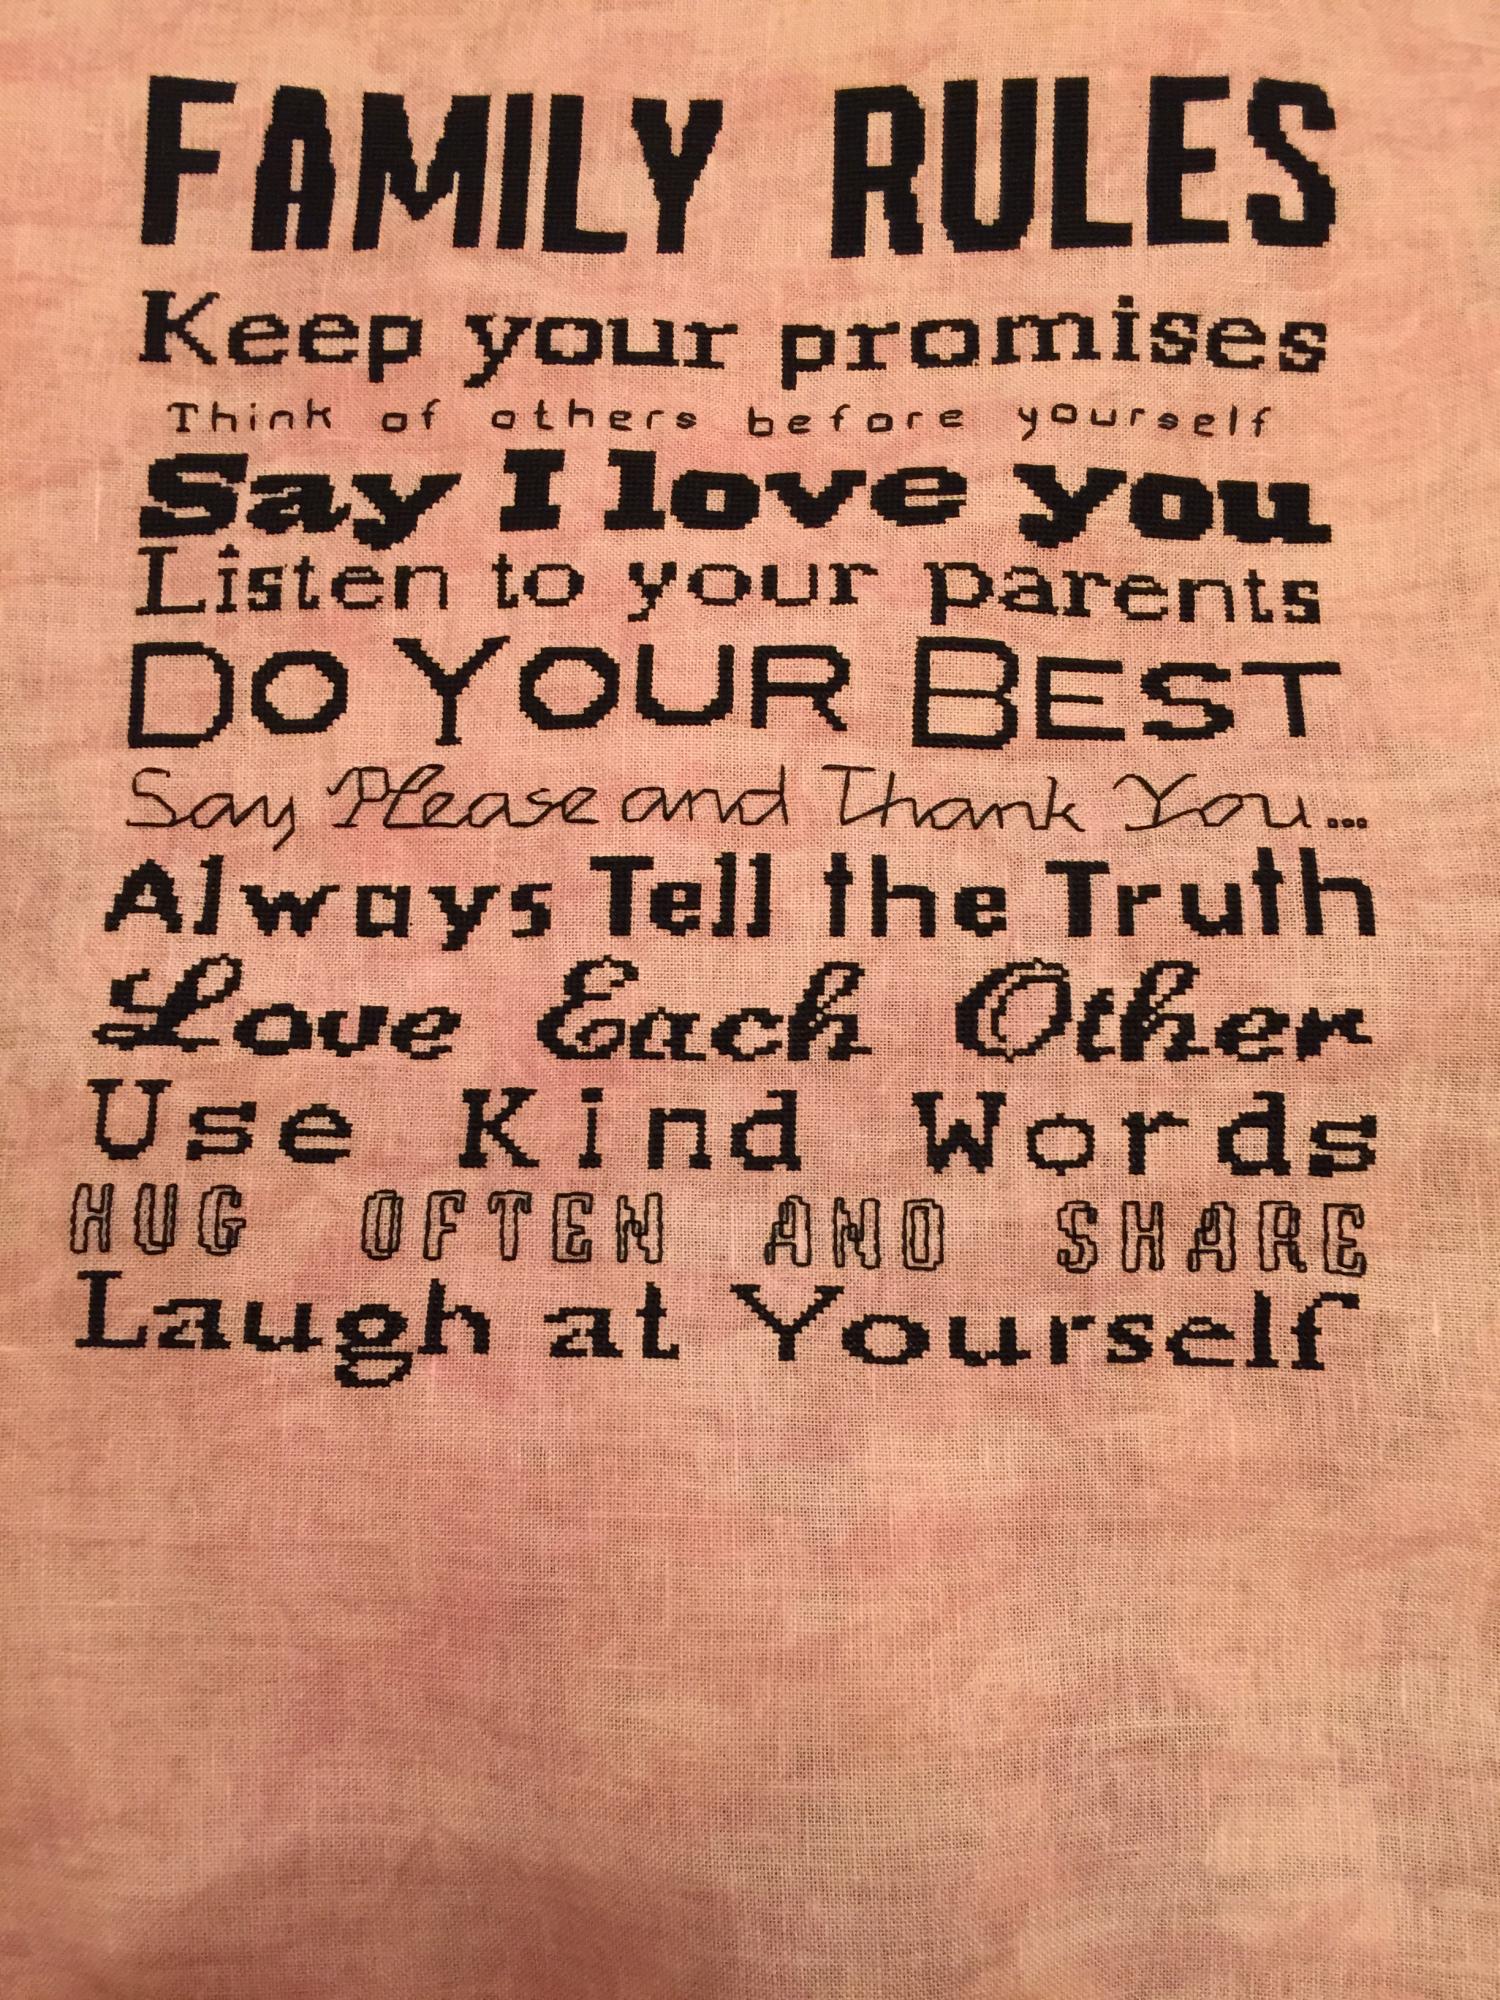 FAMILY RULES
Keep your promises
Think of others before yourself
Say I love you
Listen to your parents
DO YOUR BEST
Say Please and Thank You...
Always Tell the Truth
Love Each Other
Use Kind Words
HUG OFTEN AND SHARE
Laugh at Yourself